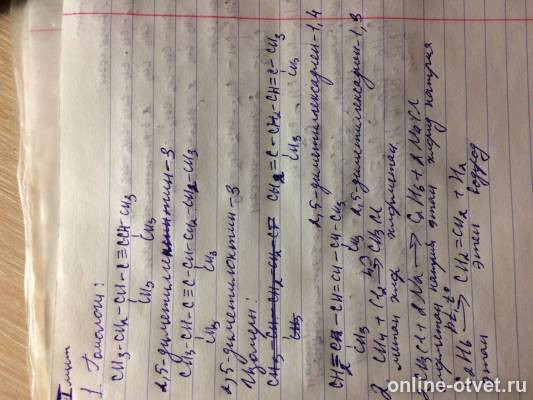 I лист
1. Гомологи:
CH3-CH2-CH-C≡CCH-CH3
CH3 CH3
2,5-диметил тин-3
CH3-CH-C≡C-CH-CH2-CH2-CH3
CH3 CH3
2,5-диметилоктин-3
Изомеры:
CH2=C-CH2-CH=C-CH3
CH3 CH3
2,5-диметилгексадиен-1,4
CH2=C-CH=CH-CH-CH3
CH3 CH3 2,5-диметилгексадиен-1,3
2. CH4 + Cl2 → CH3Cl
метан хлор хлорметан
2CH3Cl + 2Na → C2H6 + 2NaCl
хлорметан натрий этан хлорид натрия
C2H6 → CH2=CH2 + H2
Pt, t°
этан этен водород
online-otvet.ru